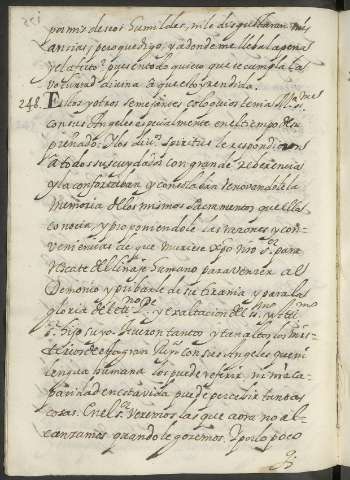 por mis deseos humildes, ni le disgustaran mis
ansias, pero que digo, y a donde me lleba la pena
y el afecto? que en todo quiero que se cumpla la
voluntad divina a que estoy rendida.
248. Estos y otros semejantes coloquios tenia Mª SS.
con sus Angeles especialmente en el tiempo de su
preñado. Y los divos. spiritus le respondieron
a todos sus cuydados con grande reberencia
y la confortaban y consolaban renovandole la
memoria de los mismos sacramentos que ella
conocia, y proponiendole las razones y con-
veniencias de que muriese Xpo nro Sr. para
rescate del linaje humano para vencer al
Demonio y pribarle de su tirania, y para la
gloria del etno. Pe. y exaltacion del SSmo. y Altmo.
Sr. hijo suyo. fueron tantos y tan altos los mis-
terios de esta gran Reyna con sus Angeles que ni
lengua humana los puede referir, ni nra ca-
pacidad en esta vida puede percebir tantas
cosas. En el Sr. Veremos las que aora no al-
canzamos quando le gozemos. Y por lo poco